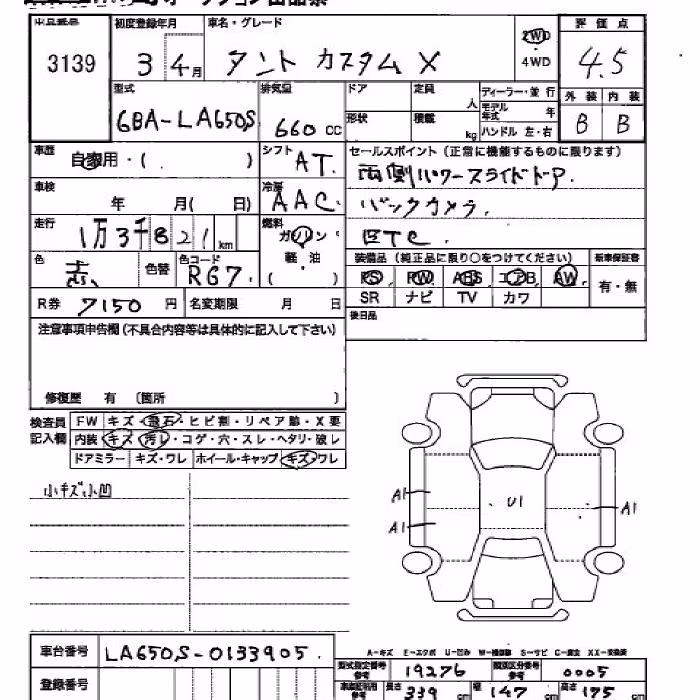 出品番号 初度登録年月 車名・グレード 2WD 評価点
3139 3 4月 タント カスタム X 4WD 4.5
型式 排気量 ドア 定員 人 ディーラー・並行 外装 内装
6BA-LA650S 660 CC 形状 積載 kg モデル年式 年 B B
ハンドル 左・右
車歴 自家用・( ) シフト AT セールスポイント（正常に機能するものに限ります）
両側パワースライドドア.
車検 年 月( 日) 冷房 AAC バックカメラ.
走行 1万3千821km 燃料 ガソリン ETC.
軽・油
( )
色 色替 色コード R67. 装備品（純正品に限り○をつけてください） 新車保証書
PS PW ABS エアB AW 有・無
SR ナビ TV カワ
R券 7150 円 名変期限 月 日 後日品
注意事項申告欄（不具合内容等は具体的に記入して下さい）
修復歴 有 〔箇所 〕
検査員 FW キズ・飛石・ヒビ割・リペア跡・X要
記入欄 内装 キズ・汚レ・コゲ・穴・スレ・ヘタリ・破レ
ドアミラー キズ・ワレ ホイール・キャップ キズ・ワレ
小キズ小凹
A1 U1 A1
A1
車台番号 LA650S-0133905.
A-キズ E-エクボ U-凹み W-補修跡 S-サビ C-腐食 XX-交換済
型式指定番号 19276 類別区分番号 0005
登録番号 長さ 339 cm 幅 147 cm 高さ 175 cm